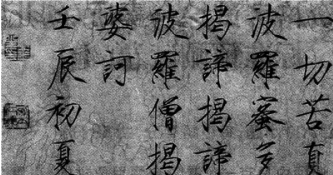 一切苦真
波羅蜜多
揭諦揭諦
波羅僧揭
娑訶
壬辰初夏